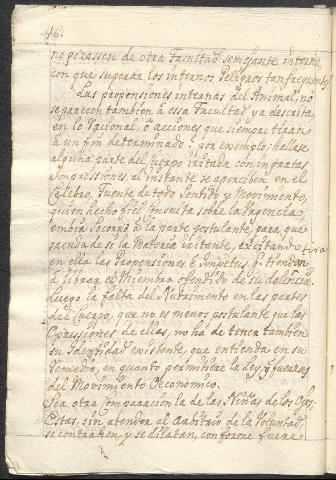 46.
no gozassen de otra Facultad semejante interna,
con que superar los internos Peligros tan frequentes.
Las propensiones internas del Animal, no
se parecen tambien à essa Facultad ya descrita
en lo racional, ò acciones que siempre tiran
à un fin determinado? por exemplo; hallase
alguna parte del Cuerpo irritada con ingratas
Impressiones, al instante se aperciben en el
Celebro, Fuente de todo Sentido y Movimiento,
quien hecho fiel consulta sobre la urgencia
embia Socorro à la parte postulante, para que
sacuda de si la Materia irritante, excitando
en ella las Propensiones è Impetus q.e tiendan
à librar el Miembro ofendido de su dolencia.
Luego la falta del Nutrimento en las partes
del Cuerpo, que no es menos postulante que las
Opressiones de ellas, no hà de tener tambien
su Identidad existente, que entienda en su
remedio, en quanto permitiere la Ley, y fuerzas
del Movimiento Oeconomico.
Sea otra comparacion la de las Niñas de los Ojos.
Estas, sin atender al Arbitrio de la Voluntad,
se contrahen, y se dilatan, conforme fuere